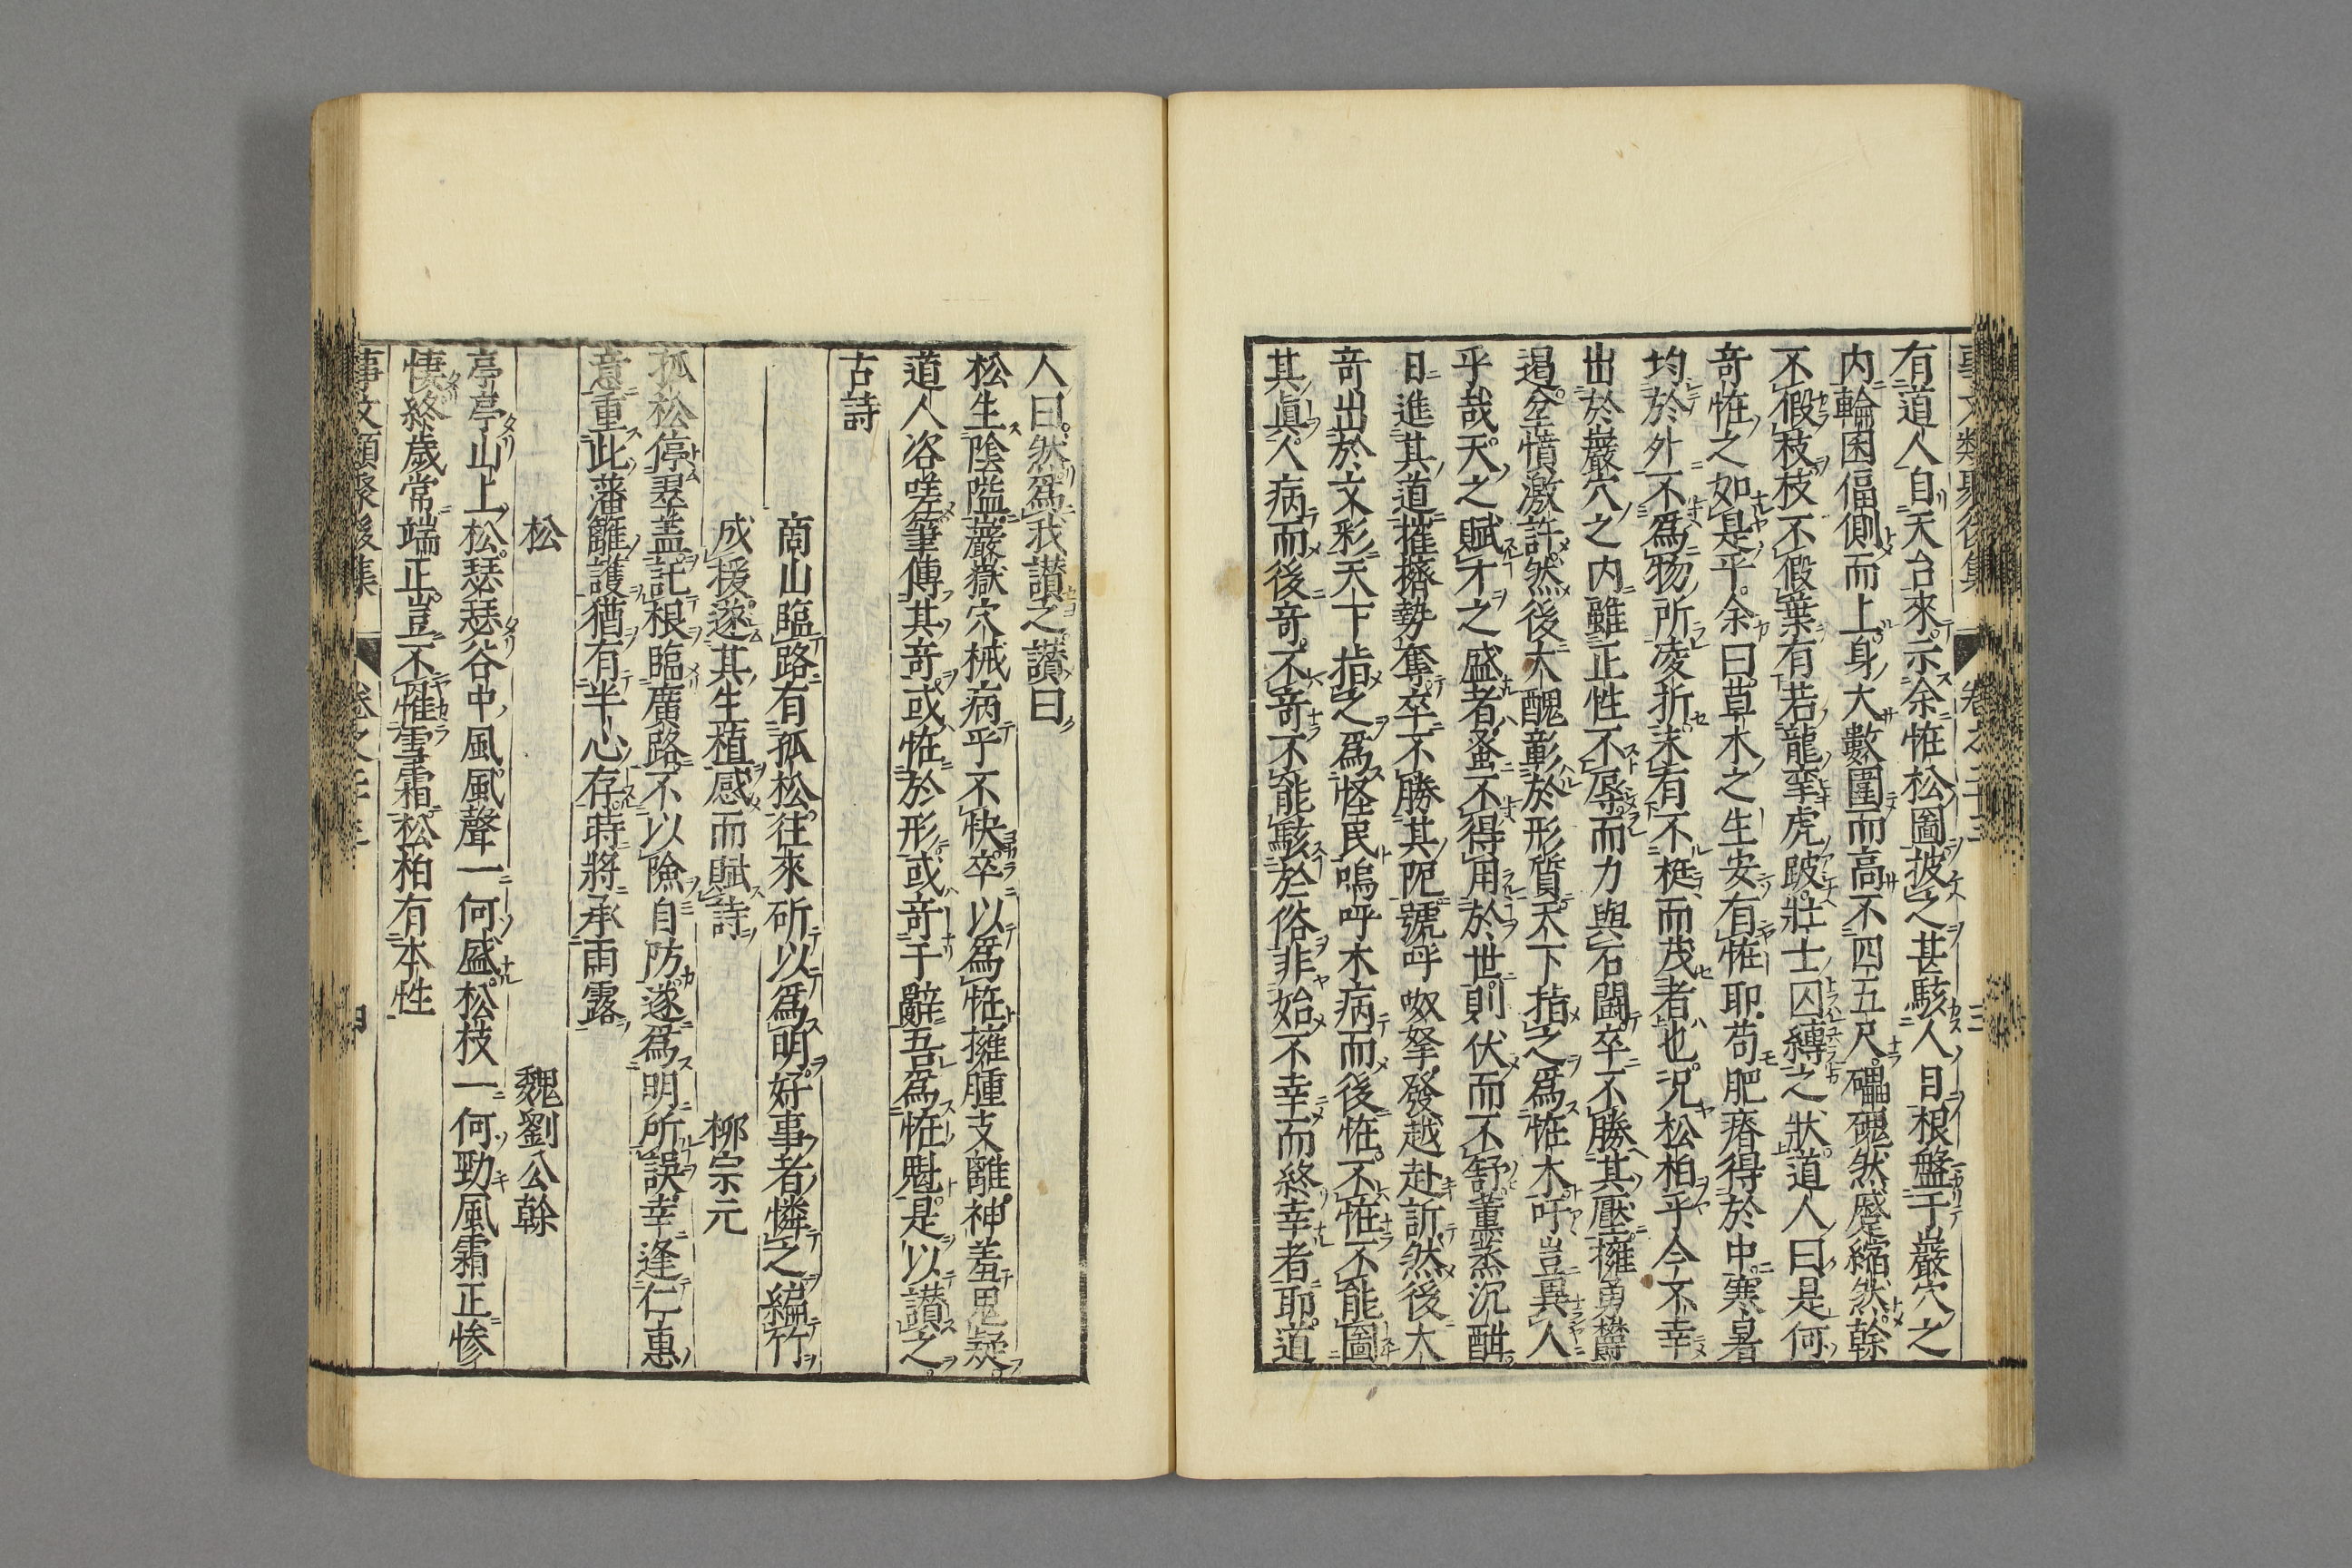 事文類聚後集 卷之二十三 三
有道人自天台來示余恠松圖披之甚駭人目根盤于巖穴之
内輪囷偪側而上身大數圍而高不四五尺礧磈然蹙縮然榦
不假枝枝不假葉有若龍攣虎跛壯士囚縛之狀道人曰是何
竒恠之如是乎余曰草木之生安有恠耶苟肥瘠得於中寒暑
均於外不爲物所凌折未有不梃而茂者也况松柏乎今不幸
出於巖穴之内雖正性不辱而力與石鬪卒不勝其壓擁勇欝
遏坌憤激訐然後大醜彰於形質天下指之爲恠木吁豈異人
乎哉天之賦才之盛者蚤不得用於世則伏而不舒薫蒸沉酣
日進其道摧擠勢奪卒不勝其阨號呼呶拏發越赴訴然後大
竒出於文彩天下指之爲怪民嗚呼木病而後恠不恠不能圖
其眞人病而後竒不竒不能駭於俗非始不幸而終幸者耶道
人曰然爲我讃之讃曰
松生陰隘巖嶽穴械病乎不快卒以爲恠擁腫支離神羞鬼疑
道人咨嗟筆傳其竒或恠於形或竒于辭吾爲恠魁是以讃之
古詩
商山臨路有孤松往來斫以爲明好事者憐之編竹
成援遂其生植感而賦詩 柳宗元
孤松停翠盖託根臨廣路不以險自防遂爲明所誤幸逢仁惠
意重此藩籬護猶有半心存時將承雨露
松 魏劉公榦
亭亭山上松瑟瑟谷中風風聲一何盛松枝一何勁風霜正慘
悽終歲常端正豈不罹雪霜松柏有本性
事文類聚後集 卷之二十三 四